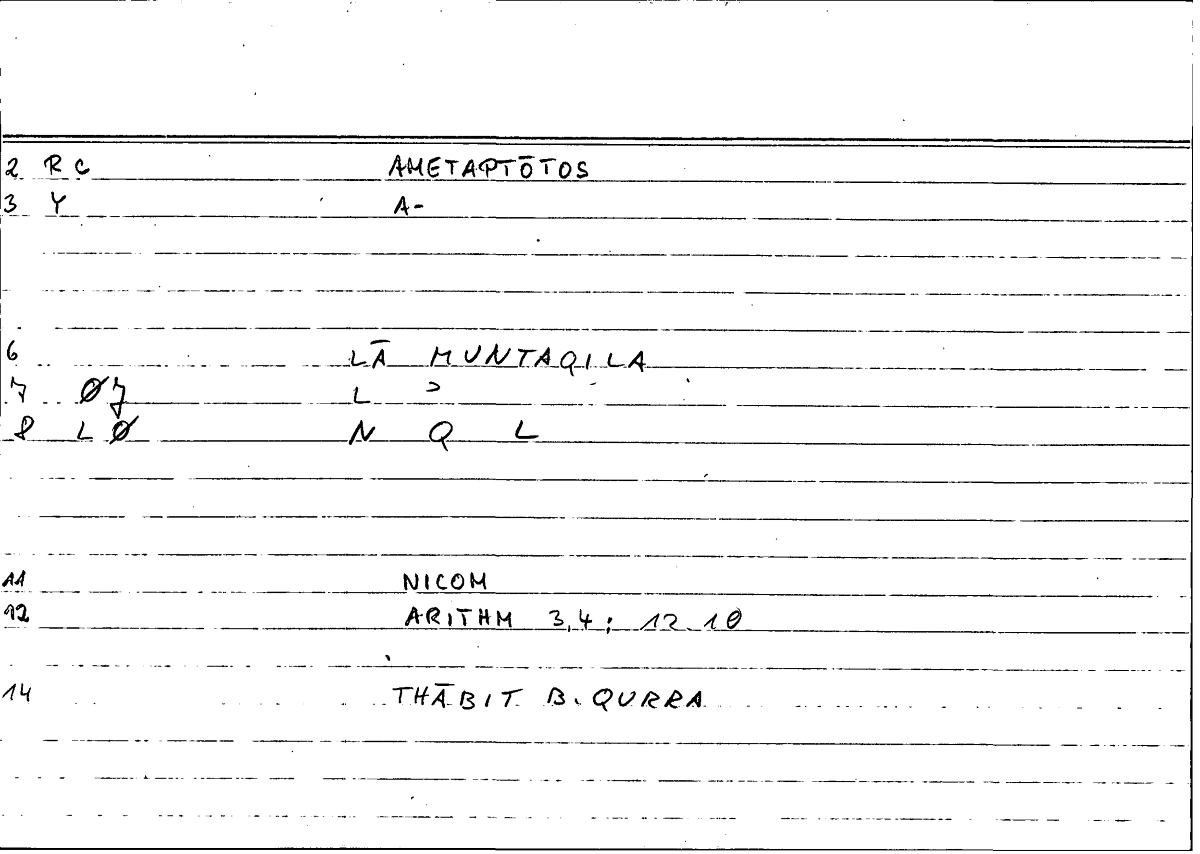 2 RC AMETAPTŌTOS
3 Y A-
6 LĀ MUNTAQILA
7 Ø7 L ʾ
8 LØ N Q L
11 NICOM
12 ARITHM 3,4; 12 10
14 THĀBIT B. QURRA